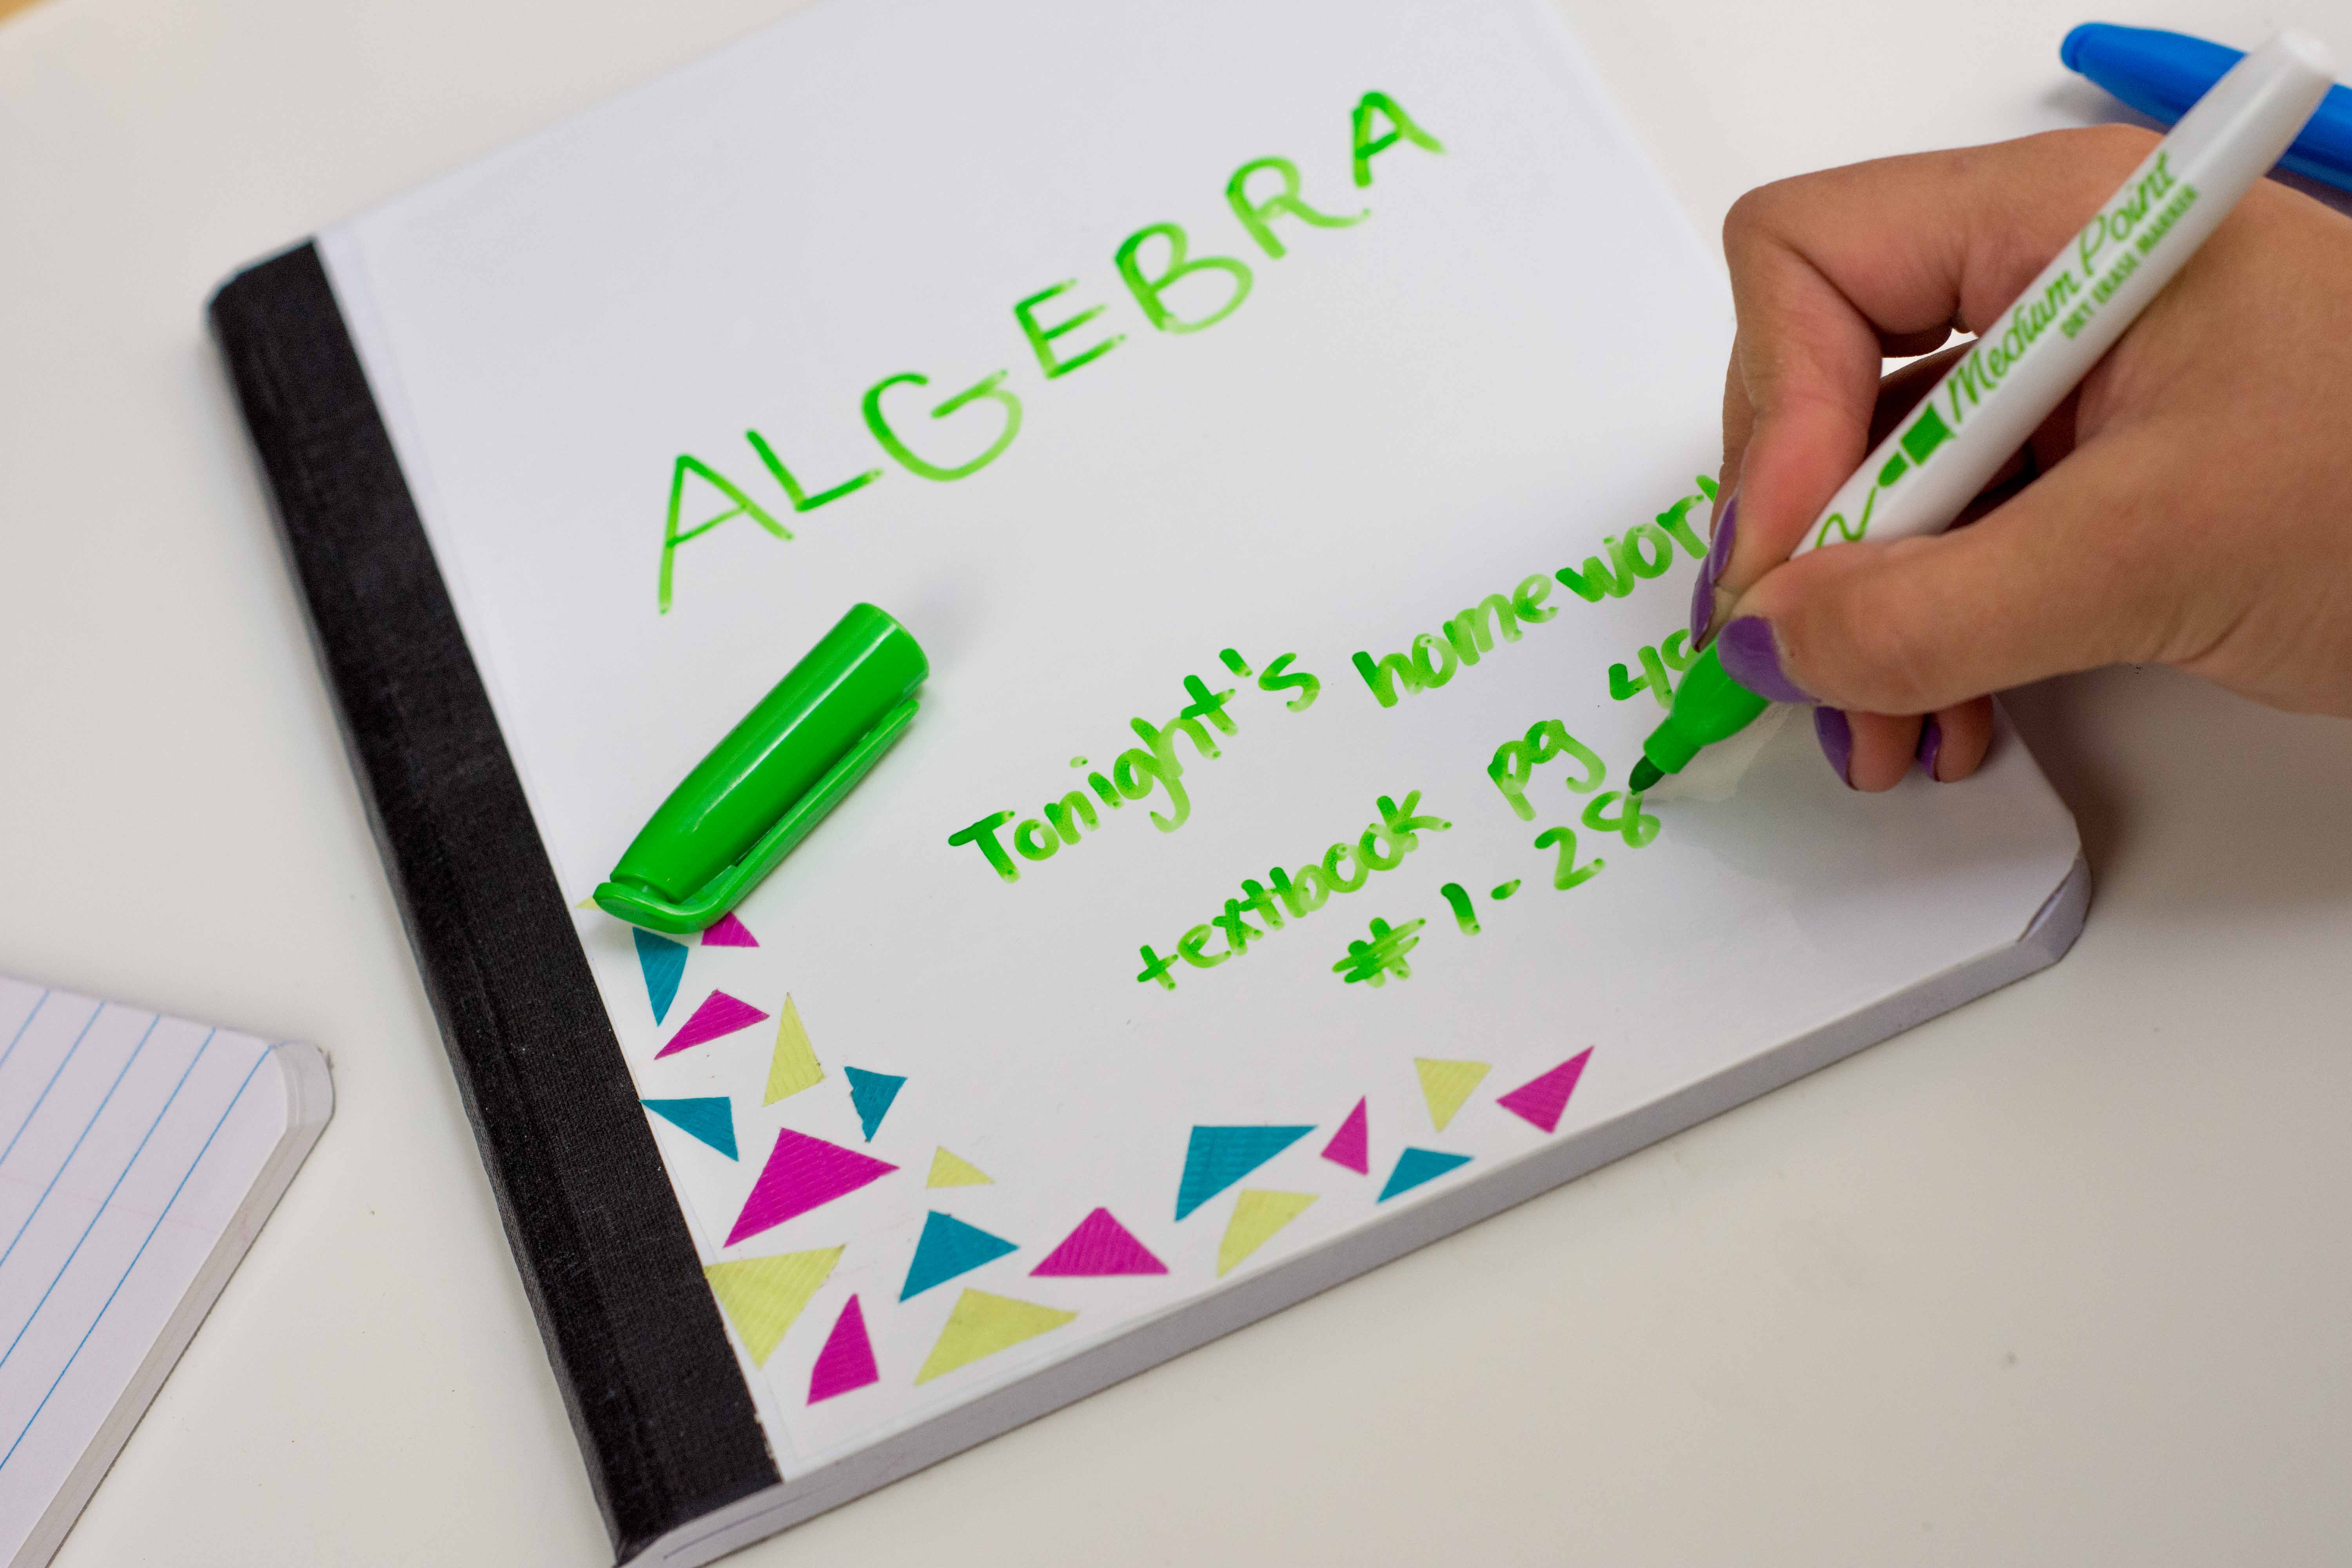 ALGEBRA
Tonight's homework
textbook pg
# 1-28
Medium Point
DRY ERASE MARKER